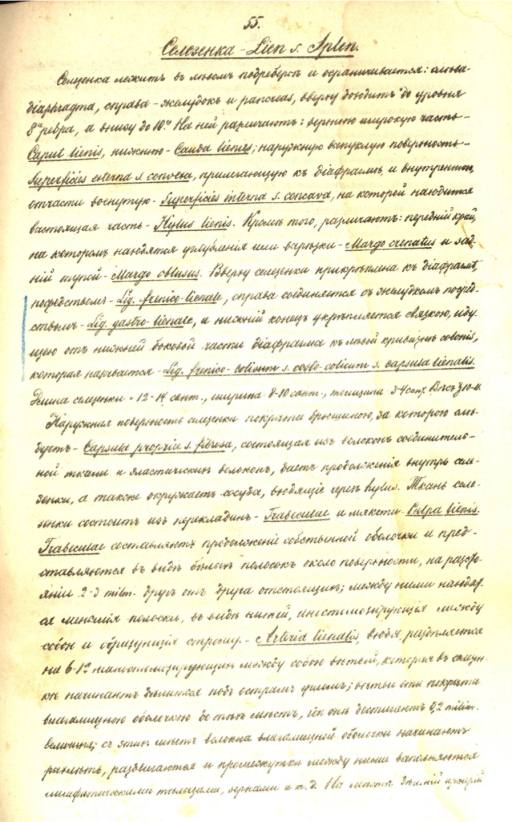 55.
Селезенка - Lien s. Splen.
Селезенка лежитъ въ лѣвомъ подреберьи и ограничивается: слѣва
diaphragma, справа - желудокъ и pancreas, вверху доходитъ до уровня
8го ребра, а внизу до 10го. На ней различаютъ: верхнюю широкую часть -
Caput lienis, нижнюю - Cauda lienis; наружную выпуклую поверхность -
Superficies externa s. convexa, прилегающую къ діафрагмѣ, и внутреннюю,
отчасти вогнутую - Superficies interna s. concava, на которой находится
часть - Hylus lienis. Кромѣ того, различаютъ: передній край,
на которомъ находятся углубленія или вырѣзки - Margo crenatus и зад-
ній тупой - Margo obtusus. Вверху селезенка прикрѣплена къ діафрагмѣ,
посредствомъ - Lig. frenico-lienale, справа соединяется съ желудкомъ посред-
ствомъ - Lig. gastro-lienale, и нижній конецъ укрѣпляется связкою, иду-
щею отъ нижней боковой части діафрагмы къ лѣвой кривизнѣ colonis,
которая называется - Lig. frenico-colicum s. costo-colicum s. capsula lienalis.
Длина селезенки - 12-14 сент., ширина 8-10 сент., толщина 3-4 сент. Вѣсъ
Наружная поверхность селезенки покрыта брюшиною, за которою слѣ-
дуетъ - Capsula propria s. fibrosa, состоящая изъ волоконъ соединитель-
ной ткани и эластическихъ волоконъ, даетъ продолженія внутрь селе-
зенки, а также окружаетъ сосуды, входящіе черезъ hylus. Ткань селе-
зенки состоитъ изъ перекладинъ - Trabeculae и мякоти - Pulpa lienis.
Trabeculae составляютъ продолженіе собственной оболочки и пред-
ставляются въ видѣ полосокъ около поверхности, на разсто-
яніи 2-3 milim. другъ отъ друга отстоящихъ; между ними находят-
ся меньшія полоски, въ видѣ нитей, анастомозирующія между
собою и образующія строму. - Arteria lienalis, входя, раздѣляется
на 6-8 анастомозирующихъ между собою вѣтвей, которыя въ селезен-
кѣ начинаютъ дѣлиться подъ острымъ угломъ; вѣтви эти покрыты
влагалищною оболочкою до тѣхъ мѣстъ, гдѣ онѣ достигаютъ 0,2 milim.
величины; съ этихъ мѣстъ волокна влагалищной оболочки начинаютъ
рыхлѣть, раздвигаются и промежутки между ними наполняются
лимфатическими тѣльцами, зернами и т. д. Въ мѣстѣ